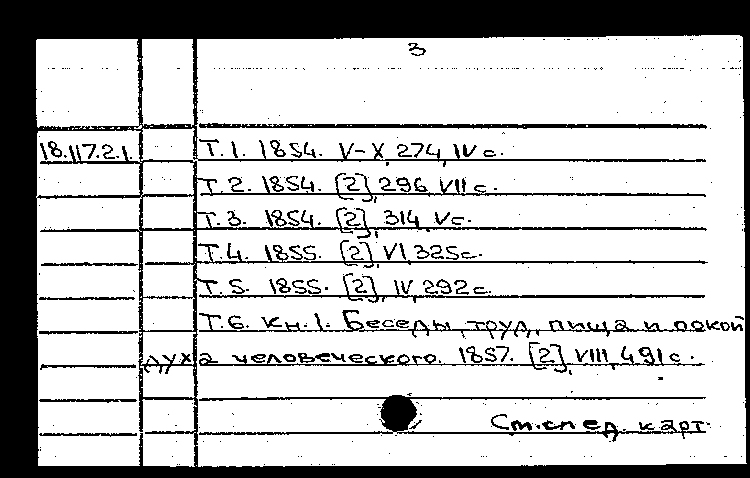 3
18.117.2.1. Т.1. 1854. V-X, 274, IV с.
Т.2. 1854. [2], 296, VII с.
Т.3. 1854. [2], 314, V с.
Т.4. 1855. [2], VI, 325 с.
Т.5. 1855. [2], IV, 292 с.
Т.6. Кн.1. Беседы, труд, пища и покой
духа человеческого. 1857. [2], VIII, 491 с.
См. след. карт.